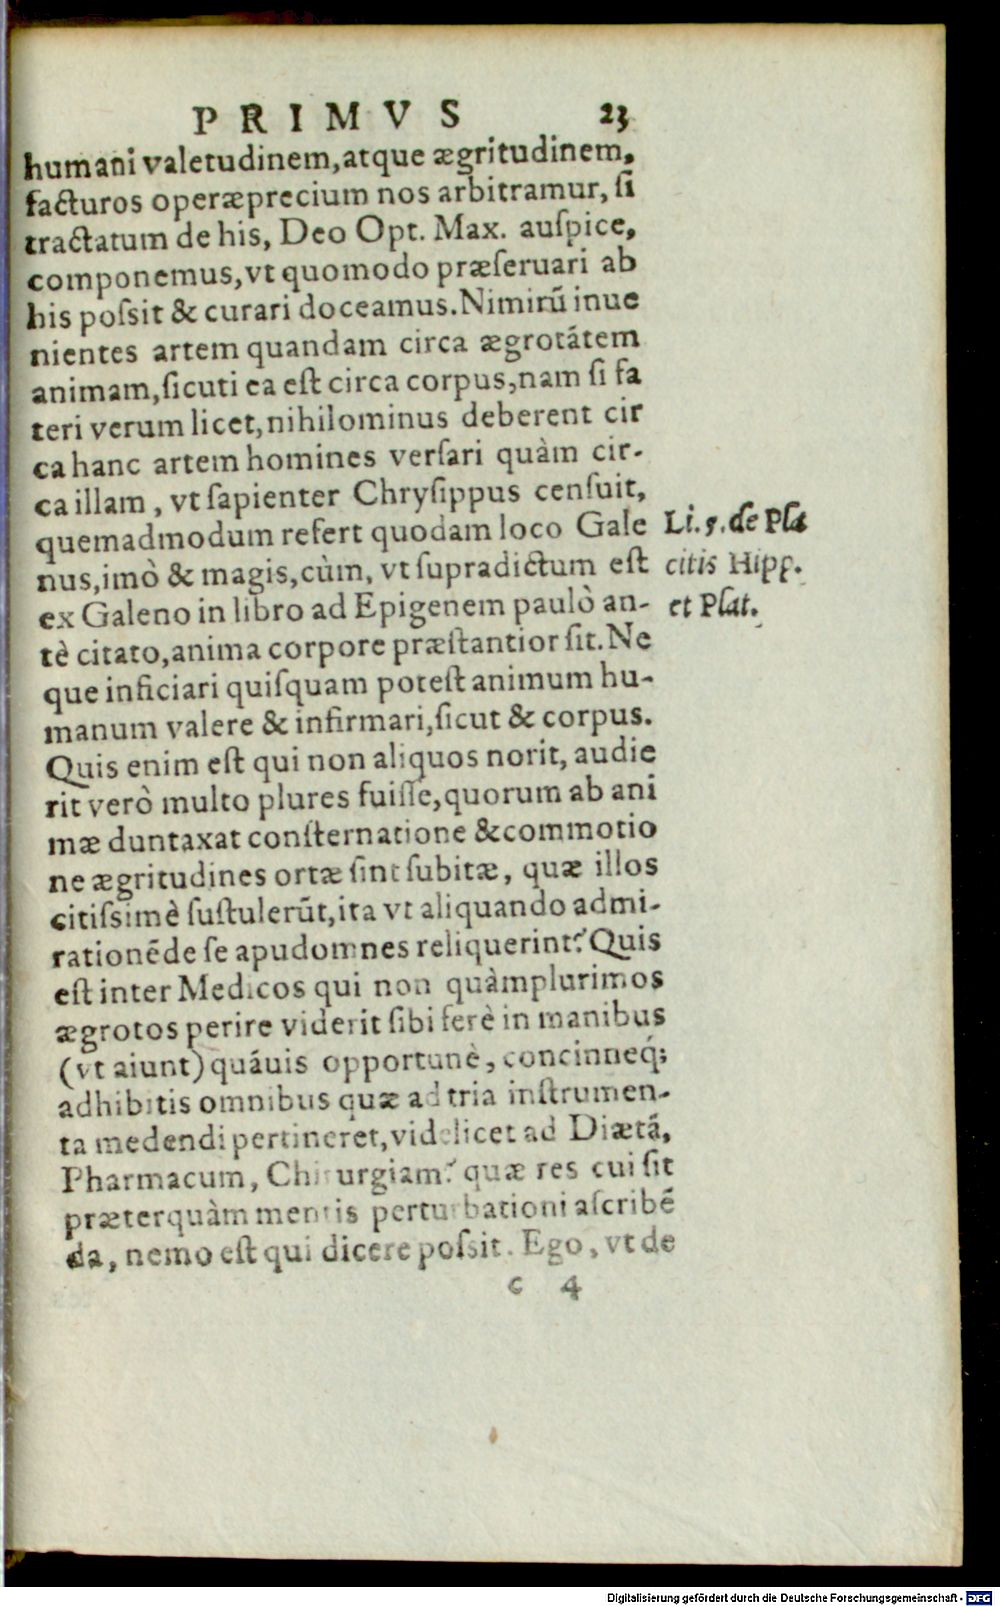 PRIMVS 23
humani valetudinem, atque ægritudinem,
facturos operæprecium nos arbitramur, ſi
tractatum de his, Deo Opt. Max. auſpice,
componemus, vt quomodo præſeruari ab
his poſsit & curari doceamus. Nimirũ inue
nientes artem quandam circa ægrotãtem
animam, ſicuti ea eſt circa corpus, nam ſi fa
teri verum licet, nihilominus deberent cir
ca hanc artem homines verſari quàm cir-
ca illam, vt ſapienter Chryſippus cenſuit,
quemadmodum refert quodam loco Gale
Li. 5. de Pla
nus, imò & magis, cùm, vt ſupradictum eſt
citis Hipp.
ex Galeno in libro ad Epigenem paulò an-
et Plat.
tè citato, anima corpore præſtantior ſit. Ne
que inficiari quiſquam poteſt animum hu-
manum valere & infirmari, ſicut & corpus.
Quis enim eſt qui non aliquos norit, audie
rit verò multo plures fuiſſe, quorum ab ani
mæ duntaxat conſternatione & commotio
ne ægritudines ortæ ſint ſubitæ, quæ illos
citiſsimè ſuſtulerũt, ita vt aliquando admi-
rationẽ de ſe apud omnes reliquerint? Quis
eſt inter Medicos qui non quàmplurimos
ægrotos perire viderit ſibi ferè in manibus
(vt aiunt) quãuis opportunè, concinneq́;
adhibitis omnibus quæ ad tria inſtrumen-
ta medendi pertineret, videlicet ad Diætã,
Pharmacum, Chirurgiam? quæ res cui ſit
præterquàm mentis perturbationi aſcribẽ
da, nemo eſt qui dicere poſsit. Ego, vt de
c 4
Digitalisierung gefördert durch die Deutsche Forschungsgemeinschaft - DFG